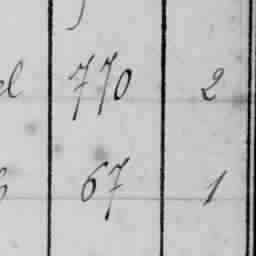 770 2
67 1